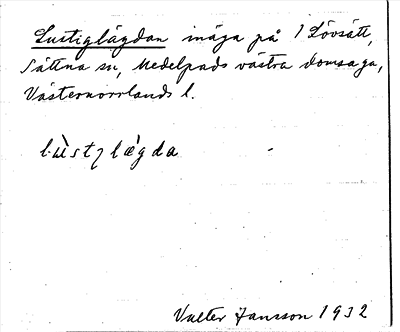 Lustiglägdan inäga på 1 Lövsått,
Sättna sn, Medelpads västra domsaga,
Västernorrlands l.
l·ùstɩlǽgda
Valter Jansson 1932